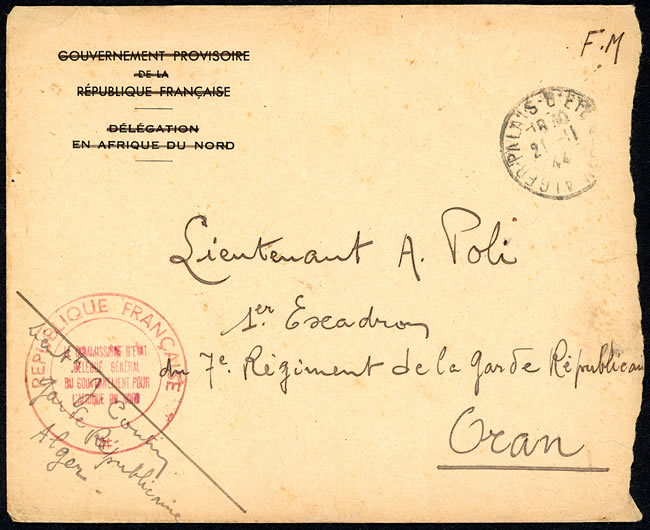 GOUVERNEMENT PROVISOIRE
DE LA
RÉPUBLIQUE FRANÇAISE
DÉLÉGATION
EN AFRIQUE DU NORD
F.M
ALGER PALAIS-D'ÉTÉ
18 30
21 - 11
44
Lieutenant A. Poli
1er Escadron
du 7e Régiment de la Garde Républicaine
Oran
RÉPUBLIQUE FRANÇAISE
LE COMMISSAIRE D'ÉTAT
DÉLÉGUÉ GÉNÉRAL
DU GOUVERNEMENT POUR
L'AFRIQUE DU NORD
Garde Républicaine
Alger